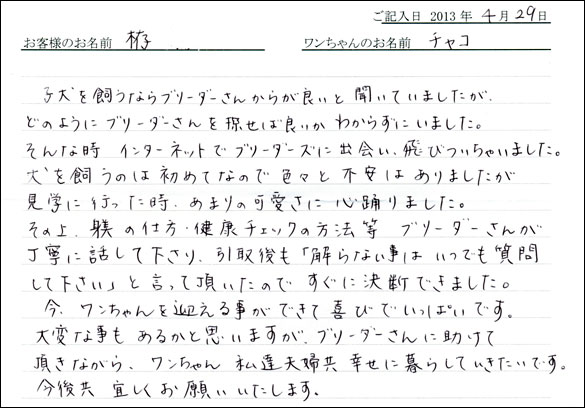 ご記入日 2013 年 4 月 29 日
お客様のお名前 ワンちゃんのお名前 チャコ
子犬を飼うならブリーダーさんからが良いと聞いていましたが、
どのようにブリーダーさんを探せば良いかわからずにいました。
そんな時 インターネットでブリーダーズに出会い、飛びついちゃいました。
犬を飼うのは初めてなので色々と不安はありましたが
見学に行った時、あまりの可愛さに心踊りました。
その上、躾の仕方・健康チェックの方法等 ブリーダーさんが
丁寧に話して下さり、引取後も「解らない事はいつでも質問
して下さい」と言って頂いたのですぐに決断できました。
今、ワンちゃんを迎える事ができて喜びでいっぱいです。
大変な事もあるかと思いますが、ブリーダーさんに助けて
頂きながら、ワンちゃん 私達夫婦共 幸せに暮らしていきたいです。
今後共 宜しくお願いいたします。